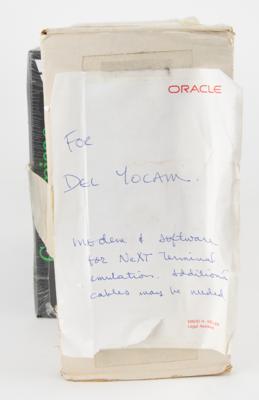 ORACLE
For
Del Yocam.
Modem & software
for NeXT Terminal
emulation. Additional
cables may be needed